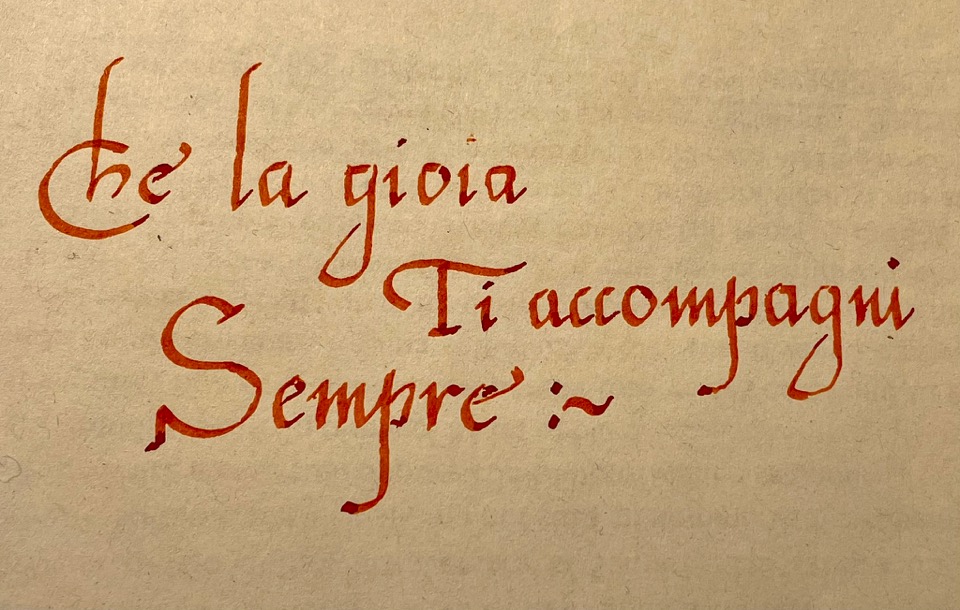 Che la gioia
Ti accompagni
Sempre :~